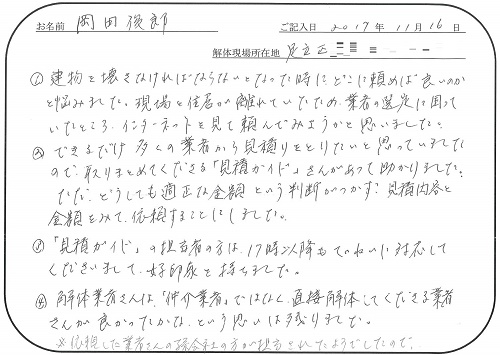 お名前 岡田俊郎 ご記入日 2017年11月16日
解体現場所在地 足立区
① 建物を壊さなければならないとなった時にどこに頼めば良いのか
と悩みました。現場と住居が離れていたため、業者の選定に困って
いたところ、インターネットを見て頼んでみようかと思いました。
② できるだけ多くの業者から見積りをとりたいと思っていました
ので、取りまとめてくださる「見積ガイド」さんがあって助かりました。
ただ、どうしても適正な金額という判断がつかず、見積内容と
金額をみて、依頼することにしました。
③ 「見積ガイド」の担当者の方は、17時以降もていねいに対応して
くださいまして、好印象を持ちました。
④ 解体業者さんは、「仲介業者」ではなく、直接解体してくださる業者
さんが良かったかな、という思いは残りました。
※依頼した業者さんの協会社の方が担当されたようでしたので。